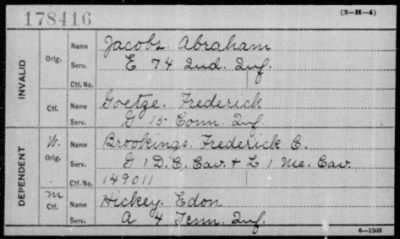 178416
(3-H-4)
INVALID
Orig.
Name Jacobs, Abraham
Serv. E 74 Ind. Inf.
Ctf. No.
Ctf.
Name Goetze, Frederick
Serv. G 15 Conn. Inf.
DEPENDENT
W.
Orig.
Name Brookings, Frederick C.
Serv. G 1 D.C. Cav. & L 1 Me. Cav.
Ctf. No. 149011
M
Ctf.
Name Hickey, Edon
Serv. A 4 Tenn. Inf.